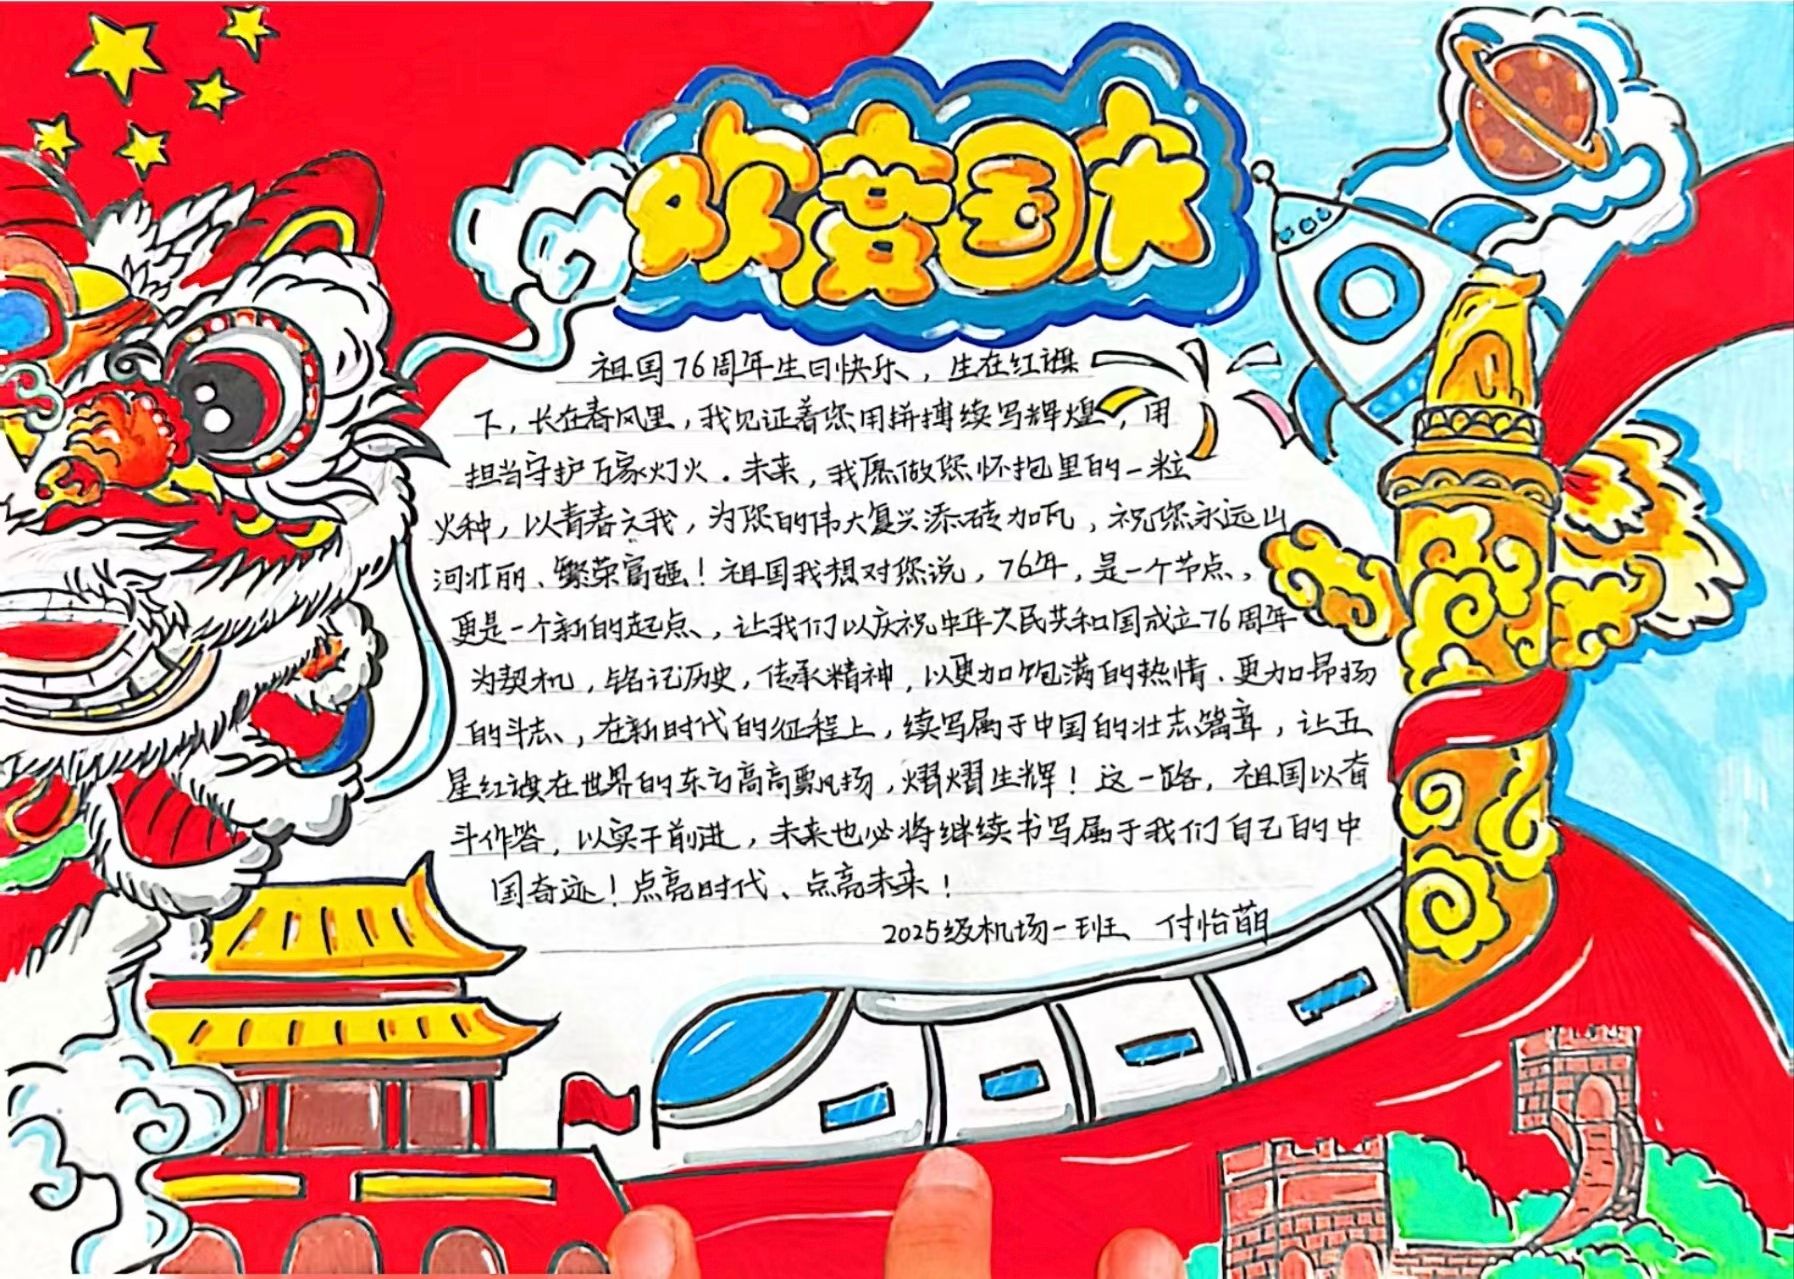 欢度国庆
祖国76周年生日快乐，生在红旗
下，长在春风里，我见证着您用拼搏续写辉煌，用
担当守护万家灯火．未来，我愿做您怀抱里的一粒
火种，以青春之我，为您的伟大复兴添砖加瓦，祝您永远山
河壮丽、繁荣富强！祖国我想对您说，76年，是一个节点，
更是一个新的起点，让我们以庆祝中华人民共和国成立76周年
为契机，铭记历史，传承精神，以更加饱满的热情．更加昂扬
的斗志，在新时代的征程上，续写属于中国的壮志篇章，让五
星红旗在世界的东方高高飘扬，熠熠生辉！这一路，祖国以奋
斗作答，以实干前进，未来也必将继续书写属于我们自己的中
国奇迹！点亮时代、点亮未来！
2025级机场一班 付怡萌